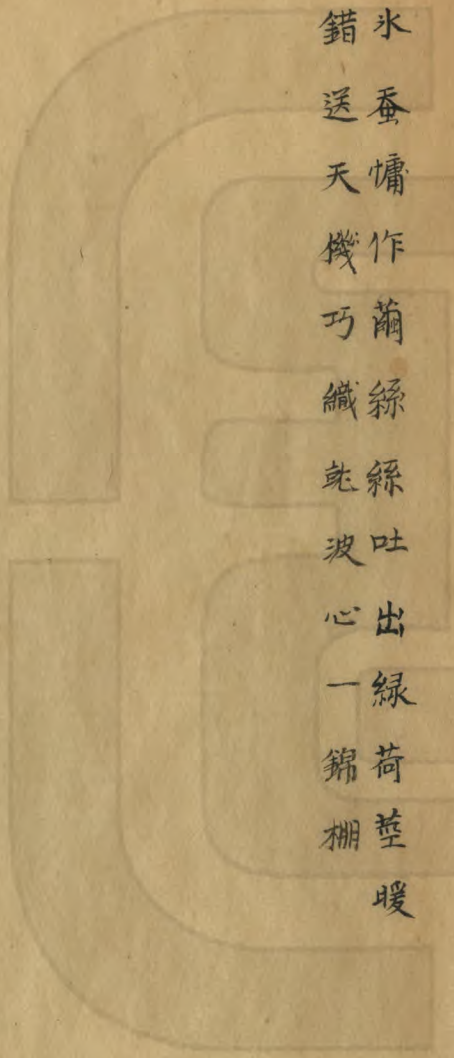 氷蚕慵作繭絲絲吐出緑荷莖暖
錯送天機巧織就波心一錦棚